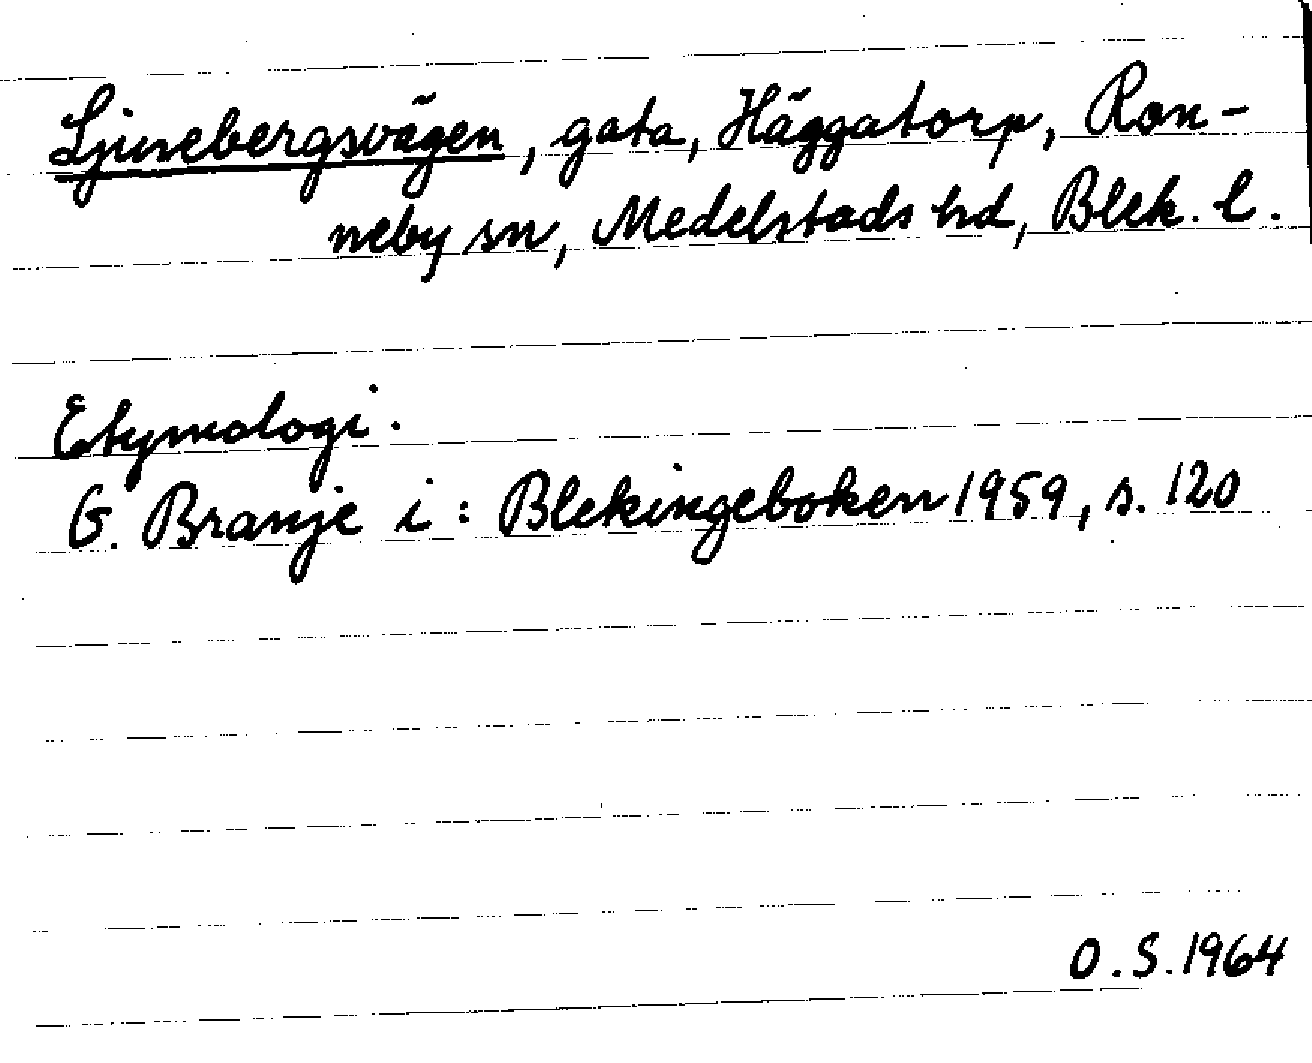 Ljunebergsvägen, gata, Häggatorp, Ron-
neby sn, Medelstads hd, Blek. l.
Etymologi.
G. Branje i: Blekingeboken 1959, s. 120
O.S. 1964